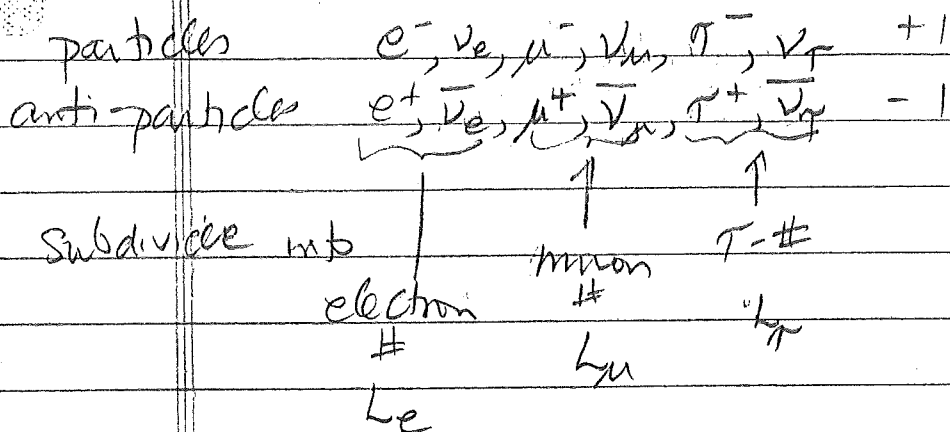 particles e⁻, νe, μ⁻, νμ, τ⁻, ντ +1
anti-particles e⁺, ν̄e, μ⁺, ν̄μ, τ⁺, ν̄τ -1
Subdivide into
electron # Le
muon # Lμ
τ-# Lτ